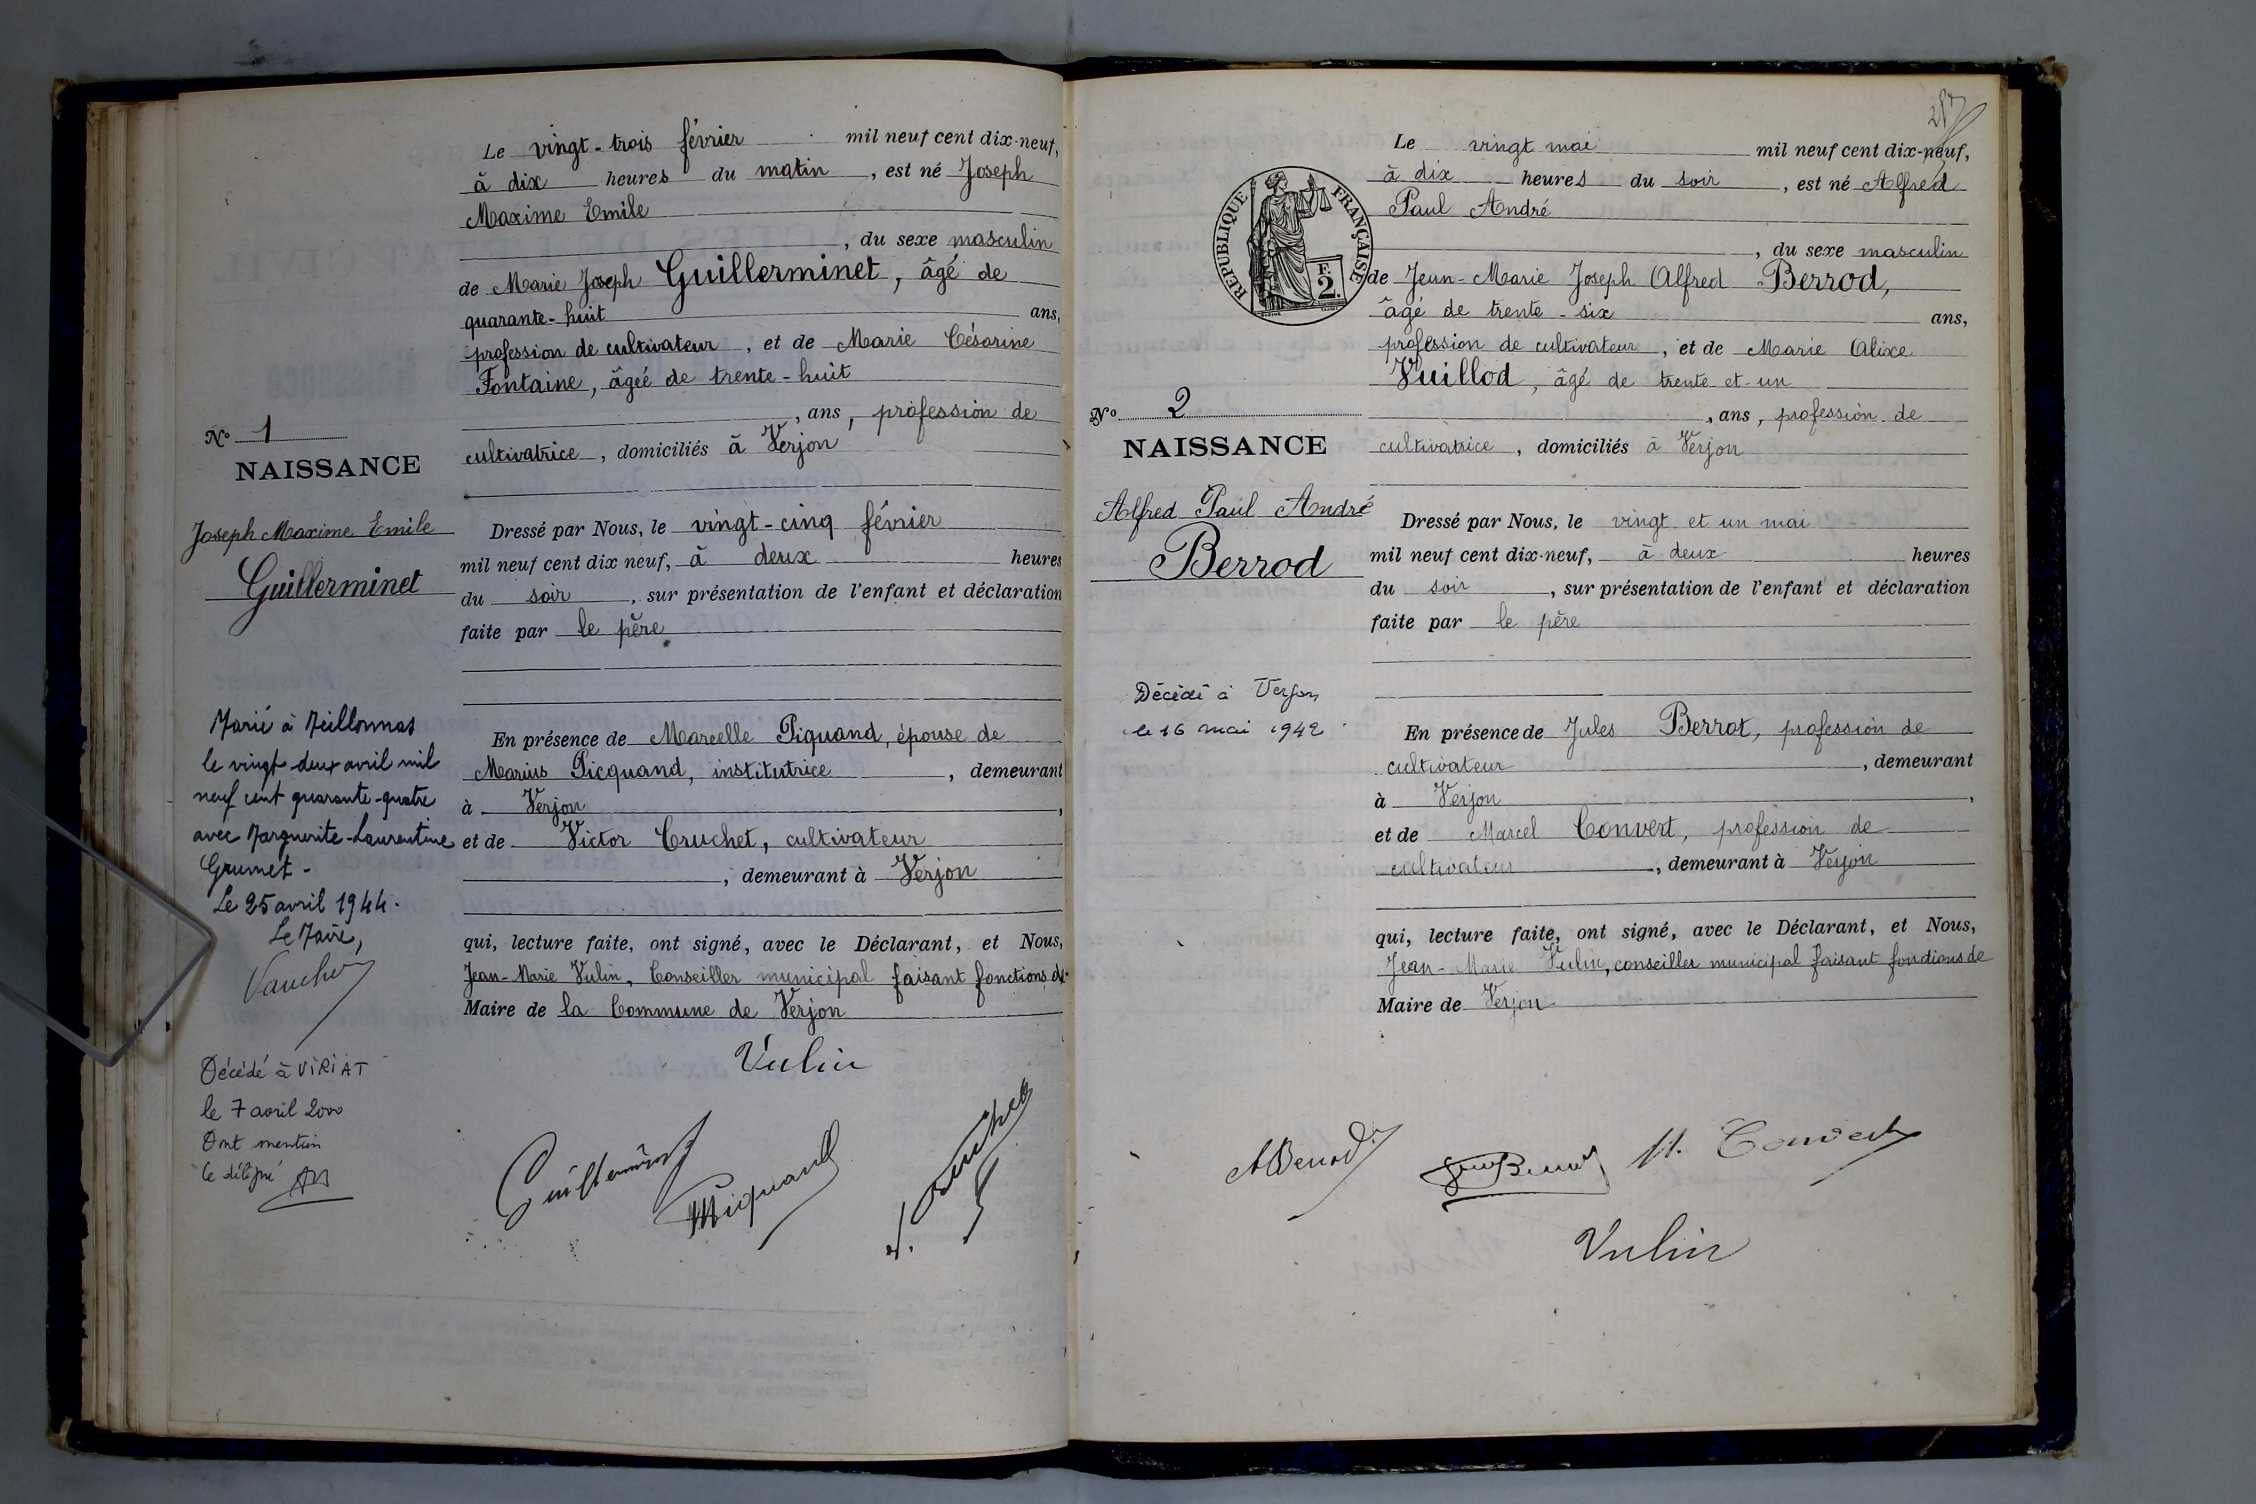 Le vingt-trois février mil neuf cent dix-neuf,
à dix heures du matin, est né Joseph
Maxime Emile
, du sexe masculin
de Marie Joseph Guillerminet, âgé de
quarante-huit ans,
profession de cultivateur, et de Marie Césarine
Fontaine, âgée de trente-huit
, ans, profession de
cultivatrice, domiciliés à Verjon
No 1
NAISSANCE
Joseph Maxime Emile
Guillerminet
Dressé par Nous, le vingt-cinq février
mil neuf cent dix neuf, à deux heures
du soir, sur présentation de l'enfant et déclaration
faite par le père
En présence de Marcelle Piquand, épouse de
Marius Picquand, institutrice, demeurant
à Verjon,
et de Victor Cruchet, cultivateur
, demeurant à Verjon
qui, lecture faite, ont signé, avec le Déclarant, et Nous,
Jean-Marie Vulin, Conseiller municipal faisant fonctions de
Maire de la Commune de Verjon
Vulin
Marié à Meillonnas
le vingt-deux avril mil
neuf cent quarante-quatre
avec Marguerite-Laurentine
Grumet-
Le 25 avril 1944.
Le Maire,
Décédé à VIRIAT
le 7 avril 2000
Dont mention
le délégué
Guillerminet
MPiquand
V. Cruchet
Le vingt mai mil neuf cent dix-neuf,
à dix heures du soir, est né Alfred
Paul André
, du sexe masculin
de Jean-Marie Joseph Alfred Berrod,
âgé de trente-six ans,
profession de cultivateur, et de Marie Alixe
Vuillod, âgé de trente et un
, ans, profession de
cultivatrice, domiciliés à Verjon
REPUBLIQUE FRANÇAISE
F.
2.
No 2
NAISSANCE
Alfred Paul André
Berrod
Dressé par Nous, le vingt et un mai
mil neuf cent dix-neuf, à deux heures
du soir, sur présentation de l'enfant et déclaration
faite par le père
Décédé à Verjon
le 16 mai 1942
En présence de Jules Berrot, profession de
cultivateur, demeurant
à Verjon,
et de Marcel Convert, profession de
cultivateur, demeurant à Verjon
qui, lecture faite, ont signé, avec le Déclarant, et Nous,
Jean-Marie Vulin, conseiller municipal faisant fonctions de
Maire de Verjon
ABerrod
M. Convert
Vulin